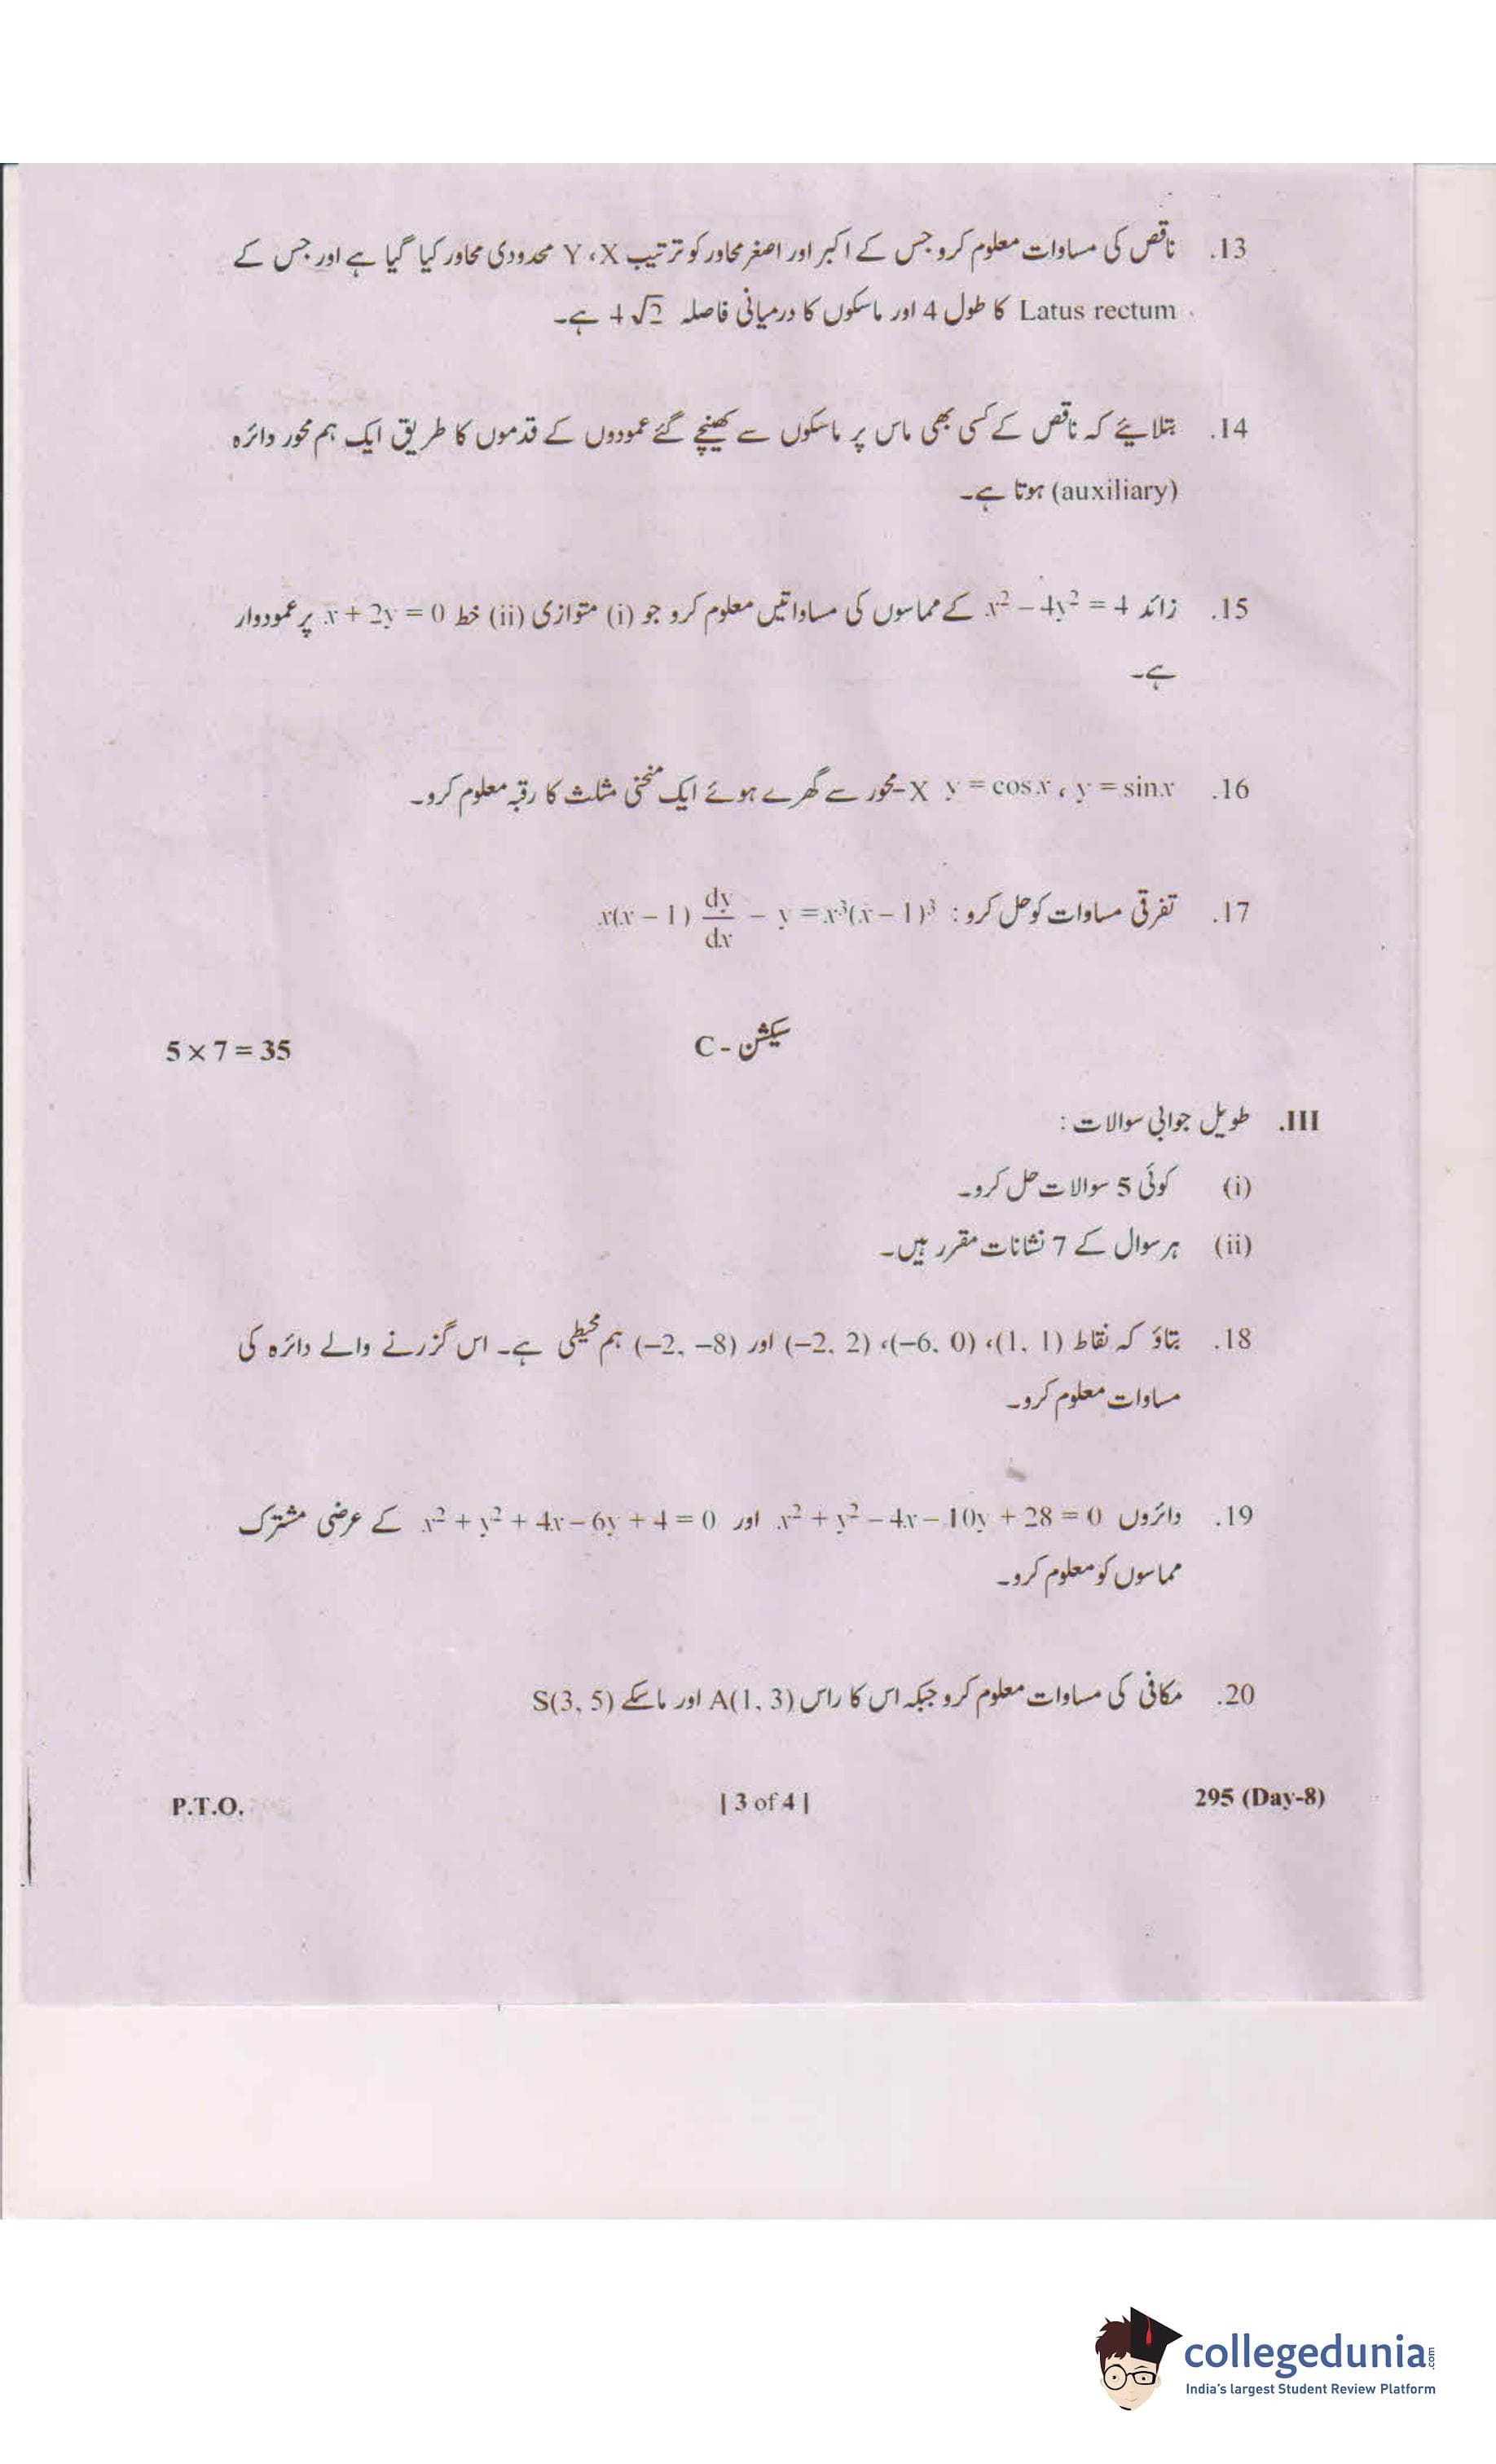 13. ناقص کی مساوات معلوم کرو جس کے اکبر اور اصغر محاور کو ترتیب X، Y محدودی محاور کیا گیا ہے اور جس کے
Latus rectum کا طول 4 اور ماسکوں کا درمیانی فاصلہ 4√2 ہے۔
14. بتلایئے کہ ناقص کے کسی بھی ماس پر ماسکوں سے کھینچے گئے عمودوں کے قدموں کا طریق ایک ہم محور دائرہ
(auxiliary) ہوتا ہے۔
15. زائد x² − 4y² = 4 کے مماسوں کی مساواتیں معلوم کرو جو (i) متوازی (ii) خط x + 2y = 0 پر عمودوار
ہے۔
16. y = sin x ، y = cos x X-محور سے گھرے ہوئے ایک منحنی مثلث کا رقبہ معلوم کرو۔
17. تفرقی مساوات کو حل کرو : x(x − 1) dy/dx − y = x³(x − 1)³
سیکشن - C 5 × 7 = 35
III. طویل جوابی سوالات :
(i) کوئی 5 سوالات حل کرو۔
(ii) ہر سوال کے 7 نشانات مقرر ہیں۔
18. بتاؤ کہ نقاط (1, 1)، (−6, 0)، (−2, 2) اور (−2, −8) ہم محیطی ہے۔ اس گزرنے والے دائرہ کی
مساوات معلوم کرو۔
19. دائروں x² + y² − 4x − 10y + 28 = 0 اور x² + y² + 4x − 6y + 4 = 0 کے عرضی مشترک
مماسوں کو معلوم کرو۔
20. مکافی کی مساوات معلوم کرو جبکہ اس کا راس A(1, 3) اور ماسکے S(3, 5)
295 (Day-8) | 3 of 4 | P.T.O.
collegedunia.com
India's largest Student Review Platform